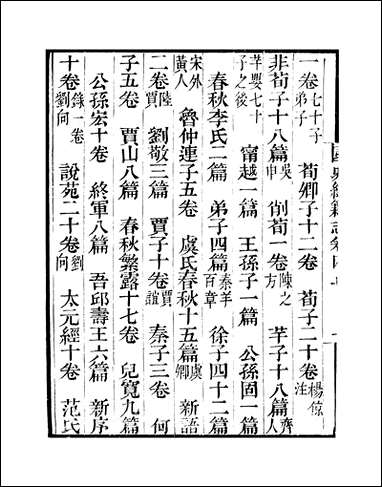 國史經籍志卷四
一卷七十子弟子 荀卿子十二卷 荀子二十卷楊倞注
非荀子十八篇吳申 削荀一卷陳之方 芊子十八篇齊人
芊嬰七十子之後 甯越一篇 王孫子一篇 公孫固一篇
春秋李氏二篇 弟子四篇秦羊百章 徐子四十二篇
宋外黃人 魯仲連子五卷 虞氏春秋十五篇虞卿 新語
二卷陸賈 劉敬三篇 賈子十卷賈誼 秦子三卷 何
子五卷 賈山八篇 春秋繁露十七卷 兒寬九篇
公孫宏十卷 終軍八篇 吾邱壽王六篇 新序
十卷錄一卷劉向 說苑二十卷劉向 太元經十卷 范氏